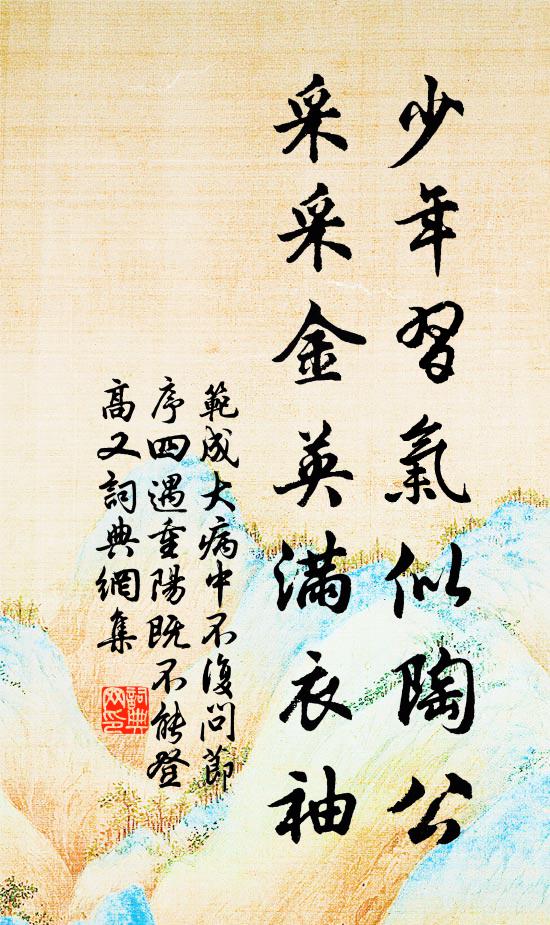 少年習氣似陶公
采采金英滿衣袖
範成大病中不復問節
序四遇重陽既不能登
高又詞典網集
詞典網印